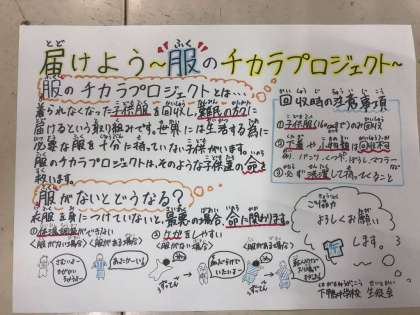 届けよう〜服のチカラプロジェクト〜
服のチカラプロジェクトとは…
着られなくなった子供服を回収し、難民の方々に
届けるという取り組みです。世界には生活する為に
必要な服を十分に持っていない子供がいます。
服のチカラプロジェクトは、そのような子供達の命を
救います。
回収時の注意事項
①子供服(160cmまで)のみ回収
②下着や小物類は回収不可
③必ず洗濯して持ってくること
服がないとどうなる?
衣服を身につけていないと、最悪の場合、命に関わります。
①体温調節ができない
②ケガをしやすい
〈服がない場合〉
〈服がある場合〉
〈服がない場合〉
〈服がある場合〉
さむいよー
あったかーい!
ご協力
よろしくお願い
します。
下鴨中学校 生徒会